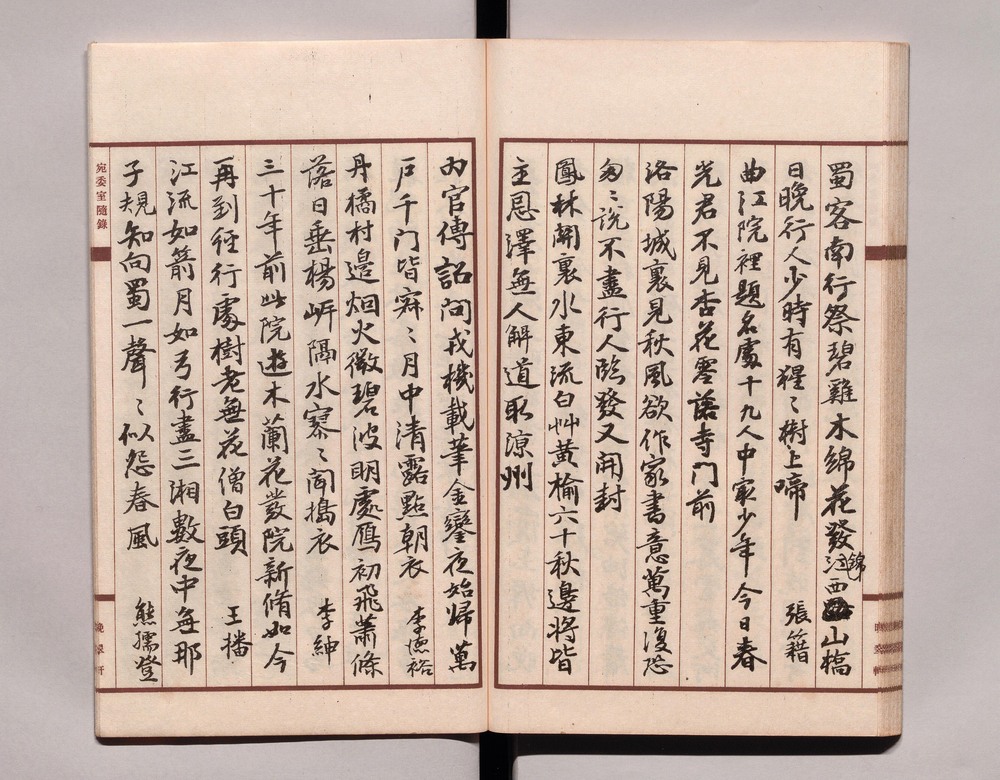 蜀客南行祭碧雞木綿花發錦江西山橋
日晚行人少時有猩〻樹上啼 張籍
曲江院裡題名處十九人中㝡少年今日春
光君不見杏花零落寺门前
洛陽城裏見秋風欲作家書意萬重復恐
匆〻說不盡行人臨發又開封
鳳林關裏水東流白艸黃榆六十秋邊將皆
主恩澤無人解道取涼州
內官傳詔问戎機載筆金鑾夜始歸萬
戶千门皆寂〻月中清露點朝衣 李德裕
丹橘村邊烟火微碧波明處雁初飛蕭條
落日垂楊岸隔水寥〻聞擣衣 李紳
三十年前此院遊木蘭花發院新脩如今
再到經行處樹老無花僧白頭 王播
江流如箭月如弓行盡三湘數夜中無那
子規知向蜀一聲〻似怨春風 熊孺登
宛委室隨錄
晚翠軒